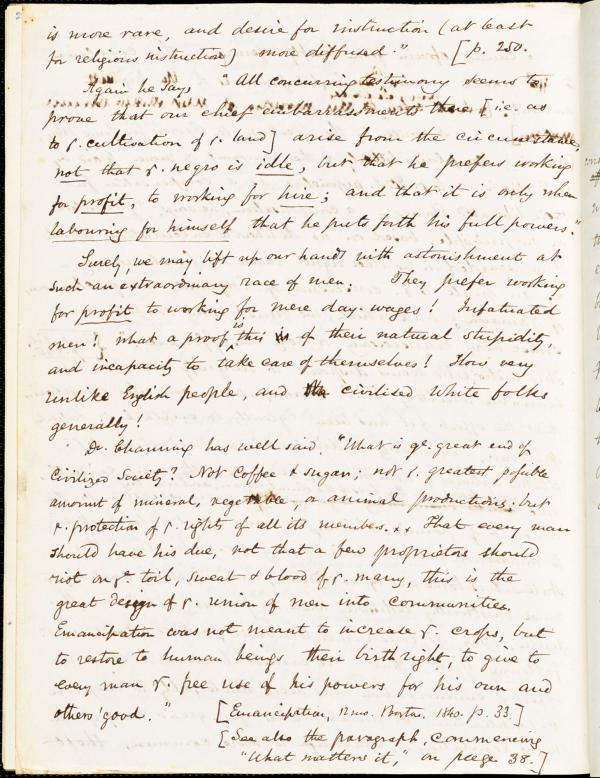 is more rare, and desire for instruction (at least
for religious instruction) more diffused." [p. 250.
Again he says "All concurring testimony seems to
prove that our chief embarrassments there [i.e. as
to ye. cultivation of ye. land] arise from the circumstance,
not that ye. negro is idle, but that he prefers working
for profit, to working for hire; and that it is only when
labouring for himself that he puts forth his full powers."
Surely, we may lift up our hands with astonishment at
such an extraordinary race of men. They prefer working
for profit to working for mere day-wages! Infatuated
men! what a proof is this of their natural stupidity,
and incapacity to take care of themselves! How very
unlike English people, and civilised white folks
generally!
Dr. Channing has well said. "What is ye. great end of
Civilized Society? Not Coffee & sugar; not ye. greatest possible
amount of mineral, vegetable, or animal productions; but
ye. protection of ye. rights of all its members. x x That every man
should have his due, not that a few proprietors should
riot on ye. toil, sweat & blood of ye. many, this is the
great design of ye. union of men into communities.
Emancipation was not meant to increase ye. crops, but
to restore to human beings their birthright, to give to
every man ye. free use of his powers for his own and
others' good." [Emancipation, 12mo. Boston. 1840. p. 33.]
[See also the paragraph, commencing
"What matters it," on page 38.]